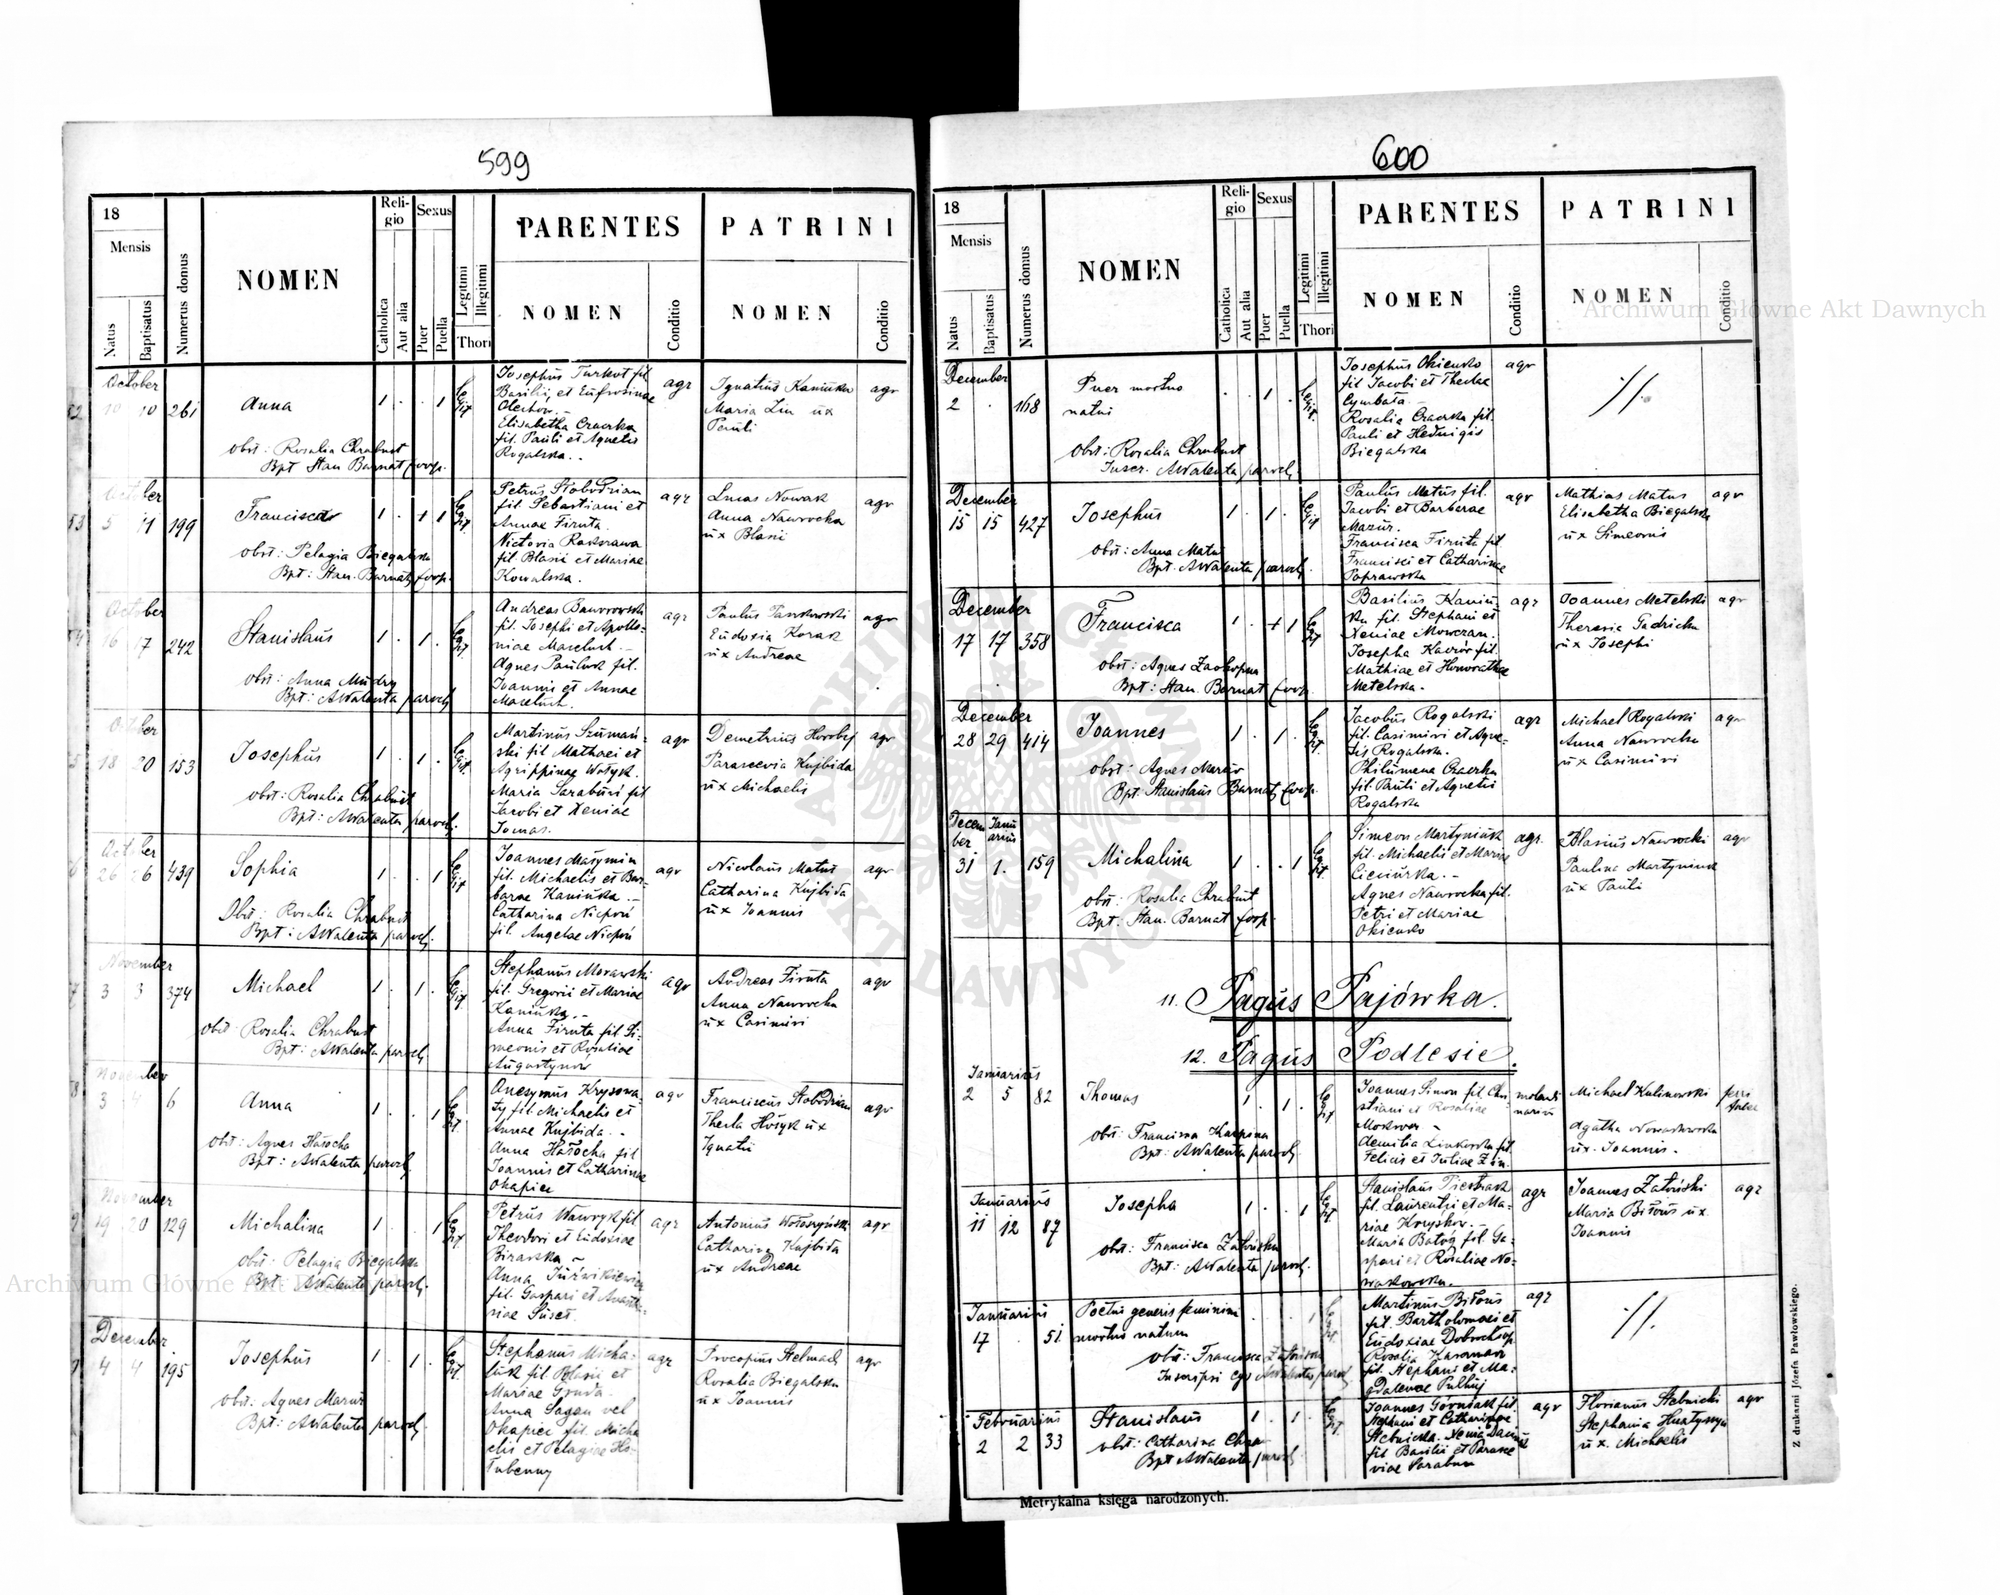 599
18
Mensis
Natus
Baptisatus
Numerus domus
NOMEN
Reli-
gio
Catholica
Aut alia
Sexus
Puer
Puella
Legitimi
Illegitimi
Thori
PARENTES
NOMEN
Conditio
PATRINI
NOMEN
Conditio
October
10 10 261
Anna
1 . . 1
Legit.
obst: Rosalia Chrabust
Bpt Stan Barnat Coop.
Josephus Turkot fil
Basilii, et Eufrosinae
Olechov. -
Elisabetha Czacrka
fil. Pauli et Agnetis
Rogalska. -
agr
Ignatius Kaniuka
Maria Lin ux
Pauli
agr
October
5 11 199
Francisca
obst: Pelagia Biegalska
Bpt: Stan. Barnat Coop.
Petrus Slobodzian
fil. Sebastiani et
Annae Firuta.
Victoria
fil. Blasii et Mariae
Kowalska.
agr
Lucas Nowak
Anna Nawrocka
ux Blasii
agr
October
16 17 242
Stanislaus
1 . 1 .
obst: Anna Mudry
Bpt: AWalenta paroch.
Andreas
fil. Josephi et Apollo-
niae
Agnes Pauluk fil.
Joannis et Annae
agr
Paulus Pankowski
Eudoxia Korak
ux Andreae
agr
October
18 20 153
Josephus
1 . 1 .
obst: Rosalia Chrabust
Bpt: AWalenta paroch.
Martinus Szumań-
ski fil Mathaei et
Agrippinae Wołyk.
Maria fil
Jacobi et Xeniae
Tomas.
agr
Demetrius Horobij
Parascevia Kujbida
ux Michaelis
agr
October
26 26 439
Sophia
1 . . 1
Obst: Rosalia Chrabust
Bpt: AWalenta paroch.
Joannes
fil. Michaelis et Bar-
barae Kaniuka. -
Catharina Niepoń
fil. Angelae Niepoń
agr
Nicolaus Matus
Catharina Kujbida
ux Joannis
agr
November
3 3 374
Michael
1 . 1 .
obst: Rosalia Chrabust
Bpt: AWalenta paroch.
Stephanus Morawski
fil. Gregorii et Mariae
Kaniuka. -
Anna Firuta fil. Si-
meonis et Rosaliae
Augustynow
agr
Andreas Firuta
Anna Nawrocka
ux Casimiri
agr
November
3 4 6
Anna
1 . . 1
obst: Agnes Hałocha
Bpt: AWalenta paroch.
Onesymus Krysowa-
ty fil Michaelis et
Annae Kujbida. -
Anna Hałocha fil
Joannis et Catharinae
Okapiec
agr
Franciscus Slobodzian
Thecla Husyk ux
Ignatii
agr
November
19 20 129
Michalina
1 . . 1
obst: Pelagia Biegalska
Bpt: AWalenta paroch.
Petrus Wawryk fil
Theodori et Eudoxiae
Anna
fil. Gaspari et Anasta-
siae
agr
Antonius Wołoszyński
Catharina Kujbida
ux Andreae
agr
December
4 4 195
Josephus
1 . 1 .
obst: Agnes Mazur
Bpt: AWalenta paroch.
Stephanus Micha-
luk fil Blasii et
Mariae Gruda.
Anna vel
Okapiec fil. Micha-
elis et Pelagiae Ho-
lubenny
agr
Procopius Stelmach
Rosalia Biegalska
ux Joannis
agr
600
18
Mensis
Natus
Baptisatus
Numerus domus
NOMEN
Reli-
gio
Catholica
Aut alia
Sexus
Puer
Puella
Legitimi
Illegitimi
Thori
PARENTES
NOMEN
Conditio
PATRINI
NOMEN
Conditio
December
2 . 168
Puer mortuo
natus
obst: Rosalia Chrabust
Inscr. AWalenta paroch.
Josephus Okiensko
fil Jacobi et Theclae
Cymbała. -
Rosalia Czacrka fil.
Pauli et Hedvigis
Biegalska
agr
December
15 15 427
Josephus
1 . 1 .
obst: Anna Matus
Bpt. AWalenta paroch.
Paulus Matus fil.
Jacobi et Barbarae
Mazur.
Francisca Firuta fil.
Francisci et Catharinae
Poprawska
agr
Mathias Matus
Elisabetha Biegalska
ux Simeonis
agr
December
17 17 358
Francisca
obst: Agnes Zachopna
Bpt: Stan. Barnat Coop.
Basilius Kaniu-
ka fil. Stephani et
Xeniae Mowczan.
Josepha fil.
Mathiae et Honorathae
Metelska.
agr
Joannes Metelski
Theresia
ux Josephi
agr
December
28 29 414
Joannes
1 . 1 .
obst: Agnes Mazur
Bpt: Stanislaus Barnat Coop.
Jacobus Rogalski
fil. Casimiri et Agne-
tis Rogalska.
Philumena Czacrka
fil. Pauli et Agnetis
Rogalska
agr
Michael Rogalski
Anna Nawrocka
ux Casimiri
agr
Decem Janu
ber arius
31 1. 159
Michalina
1 . . 1
obst: Rosalia Chrabust
Bpt: Stan. Barnat Coop.
Simeon Martyniuk
fil. Michaelis et Mariae
Agnes Nawrocka fil.
Petri et Mariae
Okiensko
agr.
Blasius Nawrocki
Paulina Martyniuk
ux Pauli
agr
11. Pagus Pajówka.
12. Pagus Podlesie.
Januarius
2 5 82
Thomas
1 . 1 .
obst: Francisca Karpina
Bpt: AWalenta paroch.
Joannes Simon fil. Chri-
stiani et Rosaliae
Aemilia Linkowska fil.
Felicis et Juliae
Michael Kulinowski
Agatha Nowakowska
ux. Joannis.
Januarius
11 12 87
Josepha
1 . . 1
obst: Francisca Zatońska
Bpt: AWalenta paroch.
Stanislaus
fil. Laurentii et Ma-
riae
Maria Batóg fil. Ga-
spari et Rosaliae No-
wakowska.
agr
Joannes Zatoński
Maria Biłous ux.
Joannis
agr
Januarius
17 . 51
Foetus generis feminini
mortuo natum
obst: Francisca Zatońska
Inscripsi AWalenta paroch.
Martinus Biłous
fil. Bartholomaei et
Eudoxiae
Rosalia Karaman
fil. Stephani et Ma-
gdalenae
agr
Februarius
2 2 33
Stanislaus
1 . 1 .
obst: Catharina
Bpt AWalenta paroch.
Joannes fil.
Stephani et Catharinae
Stebnicka. Xenia
fil Basilii et Parasce-
viae
agr
Florianus Stebnicki
Stephania
ux. Michaelis
agr
Metrykalna księga narodzonych.
Z drukarni Józefa Pawłowskiego.
Archiwum Główne Akt Dawnych
Archiwum Główne Akt Dawnych
ARCHIWUM GŁÓWNE AKT DAWNYCH